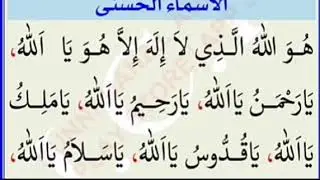 الأسماء الحسنى
هُوَ اللهُ الَّذِي لاَ إِلَهَ إِلاَّ هُوَ يَا اَللهُ،
يَارَحْمَنُ يَااَللهُ، يَارَحِيمُ يَااَللهُ، يَامَلِكُ
يَااَللهُ، يَاقُدُّوسُ يَااَللهُ، يَاسَلاَمُ يَااَللهُ،